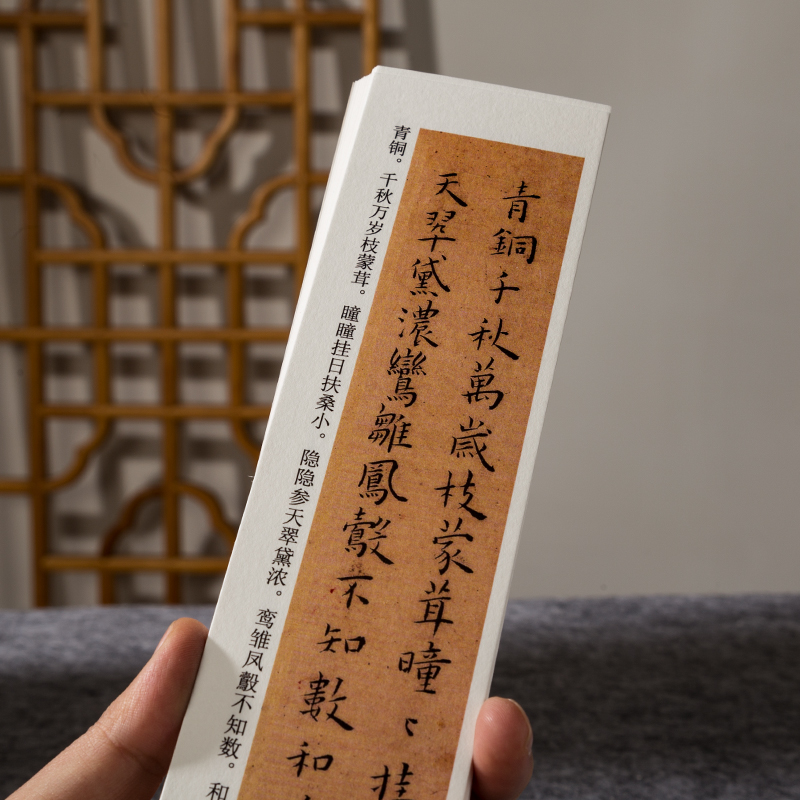 青銅千秋萬歲枝蒙茸瞳〻挂
天翠黛濃鸞雛鳳鷇不知數和
青铜。千秋万岁枝蒙茸。瞳瞳挂日扶桑小。隐隐参天翠黛浓。鸾雏凤鷇不知数。和